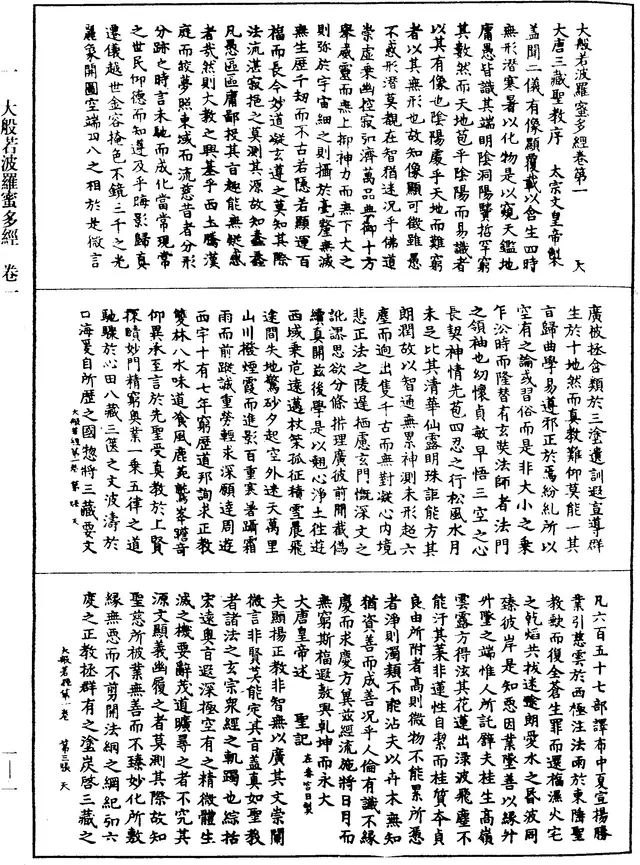 大般若波羅蜜多經卷第一　天
大唐三藏聖教序　太宗文皇帝製
蓋聞二儀有像顯覆載以含生四時
無形潛寒暑以化物是以窺天鑑地
庸愚皆識其端明陰洞陽賢哲罕窮
其數然而天地苞乎陰陽而易識者
以其有像也陰陽處乎天地而難窮
者以其無形也故知像顯可徵雖愚
不惑形潛莫覩在智猶迷況乎佛道
崇虛乘幽控寂弘濟萬品典御十方
舉威靈而無上抑神力而無下大之
則弥於宇宙細之則攝於毫釐無滅
無生歷千劫而不古若隱若顯運百
福而長今妙道凝玄遵之莫知其際
法流湛寂挹之莫測其源故知蠢蠢
凡愚區區庸鄙投其旨趣能無疑惑
者哉然則大教之興基乎西土騰漢
庭而皎夢照東域而流慈昔者分形
分跡之時言未馳而成化當常現常
之世民仰德而知遵及乎晦影歸真
遷儀越世金容掩色不鏡三千之光
麗象開圖空端四八之相於是微言
廣被拯含類於三塗遺訓遐宣導群
生於十地然而真教難仰莫能一其
旨歸曲學易遵邪正於焉紛糺所以
空有之論或習俗而是非大小之乘
乍沿時而隆替有玄奘法師者法門
之領袖也幼懷貞敏早悟三空之心
長契神情先苞四忍之行松風水月
未足比其清華仙露明珠詎能方其
朗潤故以智通無累神測未形超六
塵而迥出隻千古而無對凝心內境
悲正法之陵遲栖慮玄門慨深文之
訛謬思欲分條析理廣彼前聞截偽
續真開茲後學是以翹心淨土往遊
西域乘危遠邁杖策孤征積雪晨飛
途間失地驚砂夕起空外迷天萬里
山川撥煙霞而進影百重寒暑躡霜
雨而前蹤誠重勞輕求深願達周遊
西宇十有七年窮歷道邦詢求正教
雙林八水味道飡風鹿苑鷲峯瞻奇
仰異承至言於先聖受真教於上賢
探賾妙門精窮奧業一乘五律之道
馳驟於心田八藏三篋之文波濤於
大般若經第一卷　第二張　天
口海爰自所歷之國惣將三藏要文
凡六百五十七部譯布中夏宣揚勝
業引慈雲於西極注法雨於東陲聖
教缺而復全蒼生罪而還福濕火宅
之乾焰共拔迷途朗愛水之昏波同
臻彼岸是知惡因業墜善以緣升
升墜之端惟人所託譬夫桂生高嶺
雲露方得泫其花蓮出淥波飛塵不
能汙其葉非蓮性自潔而桂質本貞
良由所附者高則微物不能累所憑
者淨則濁類不能沾夫以卉木無知
猶資善而成善況乎人倫有識不緣
慶而求慶方冀茲經流施將日月而
無窮斯福遐敷與乾坤而永大
大唐皇帝述　聖記　在春宮日製
夫顯揚正教非智無以廣其文崇闡
微言非賢莫能定其旨蓋真如聖教
者諸法之玄宗眾經之軌躅也綜括
宏遠奧旨遐深極空有之精微體生
滅之機要辭茂道曠尋之者不究其
源文顯義幽履之者莫測其際故知
聖慈所被業無善而不臻妙化所敷
緣無惡而不剪開法網之綱紀弘六
度之正教拯群有之塗炭啓三藏之
大般若經第一卷　第三張　天
一　大般若波羅蜜多經　卷一
一—一